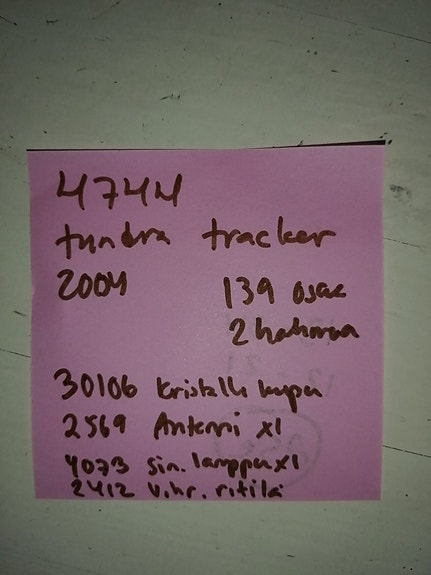 4744
tundra tracker
2004 139 osaa
2 hahmoa
30106 kristalli kupu
2569 Antenni x1
4073 sin. lamppu x1
2412 v.hr. ritilä